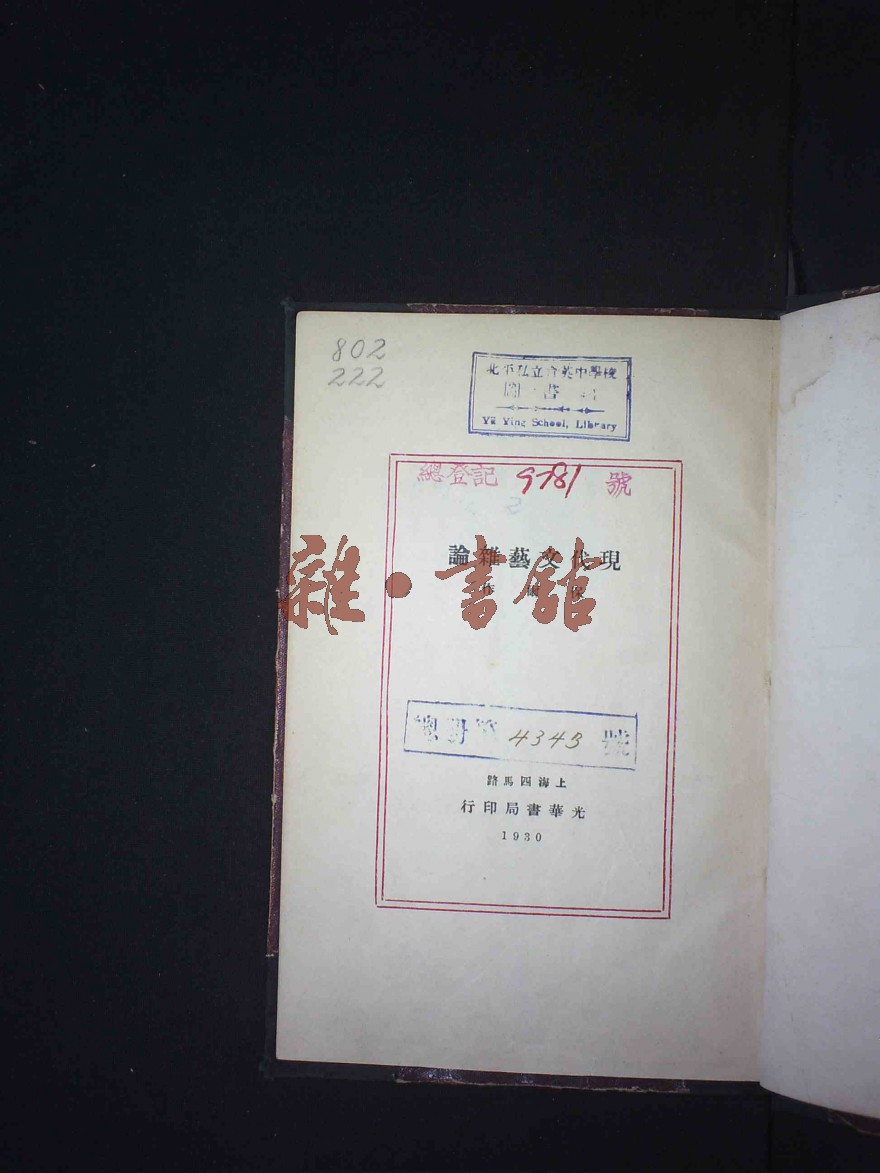 802
222
北平私立育英中學校
圖書館
Yü Ying School, Library
總登記 9781 號
現代文藝雜論
作
雜·書館
4343 號
上海四馬路
光華書局印行
1930